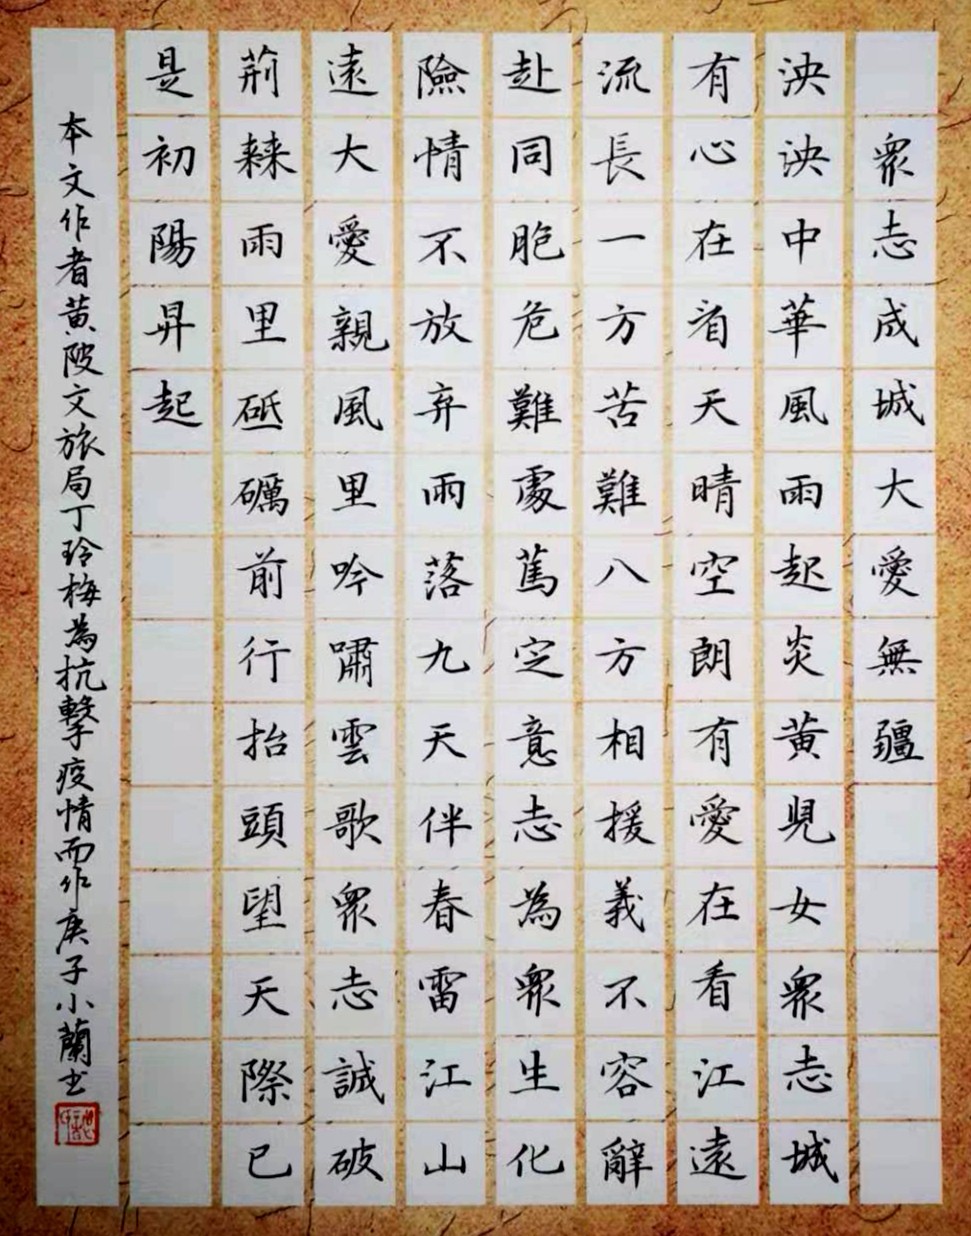 衆志成城大愛無疆
泱泱中華風雨起炎黃児女衆志城
有心在看天晴空朗有愛在看江遠
流長一方苦難八方相援義不容辭
赴同胞危難處篤定意志為衆生化
險情不放弃雨落九天伴春雷江山
遠大愛親風里吟嘯雲歌衆志誠破
荊棘雨里砥礪前行抬頭望天際已
是初陽昇起
本文作者黄陂文旅局丁玲梅為抗擊疫情而作庚子小蘭书